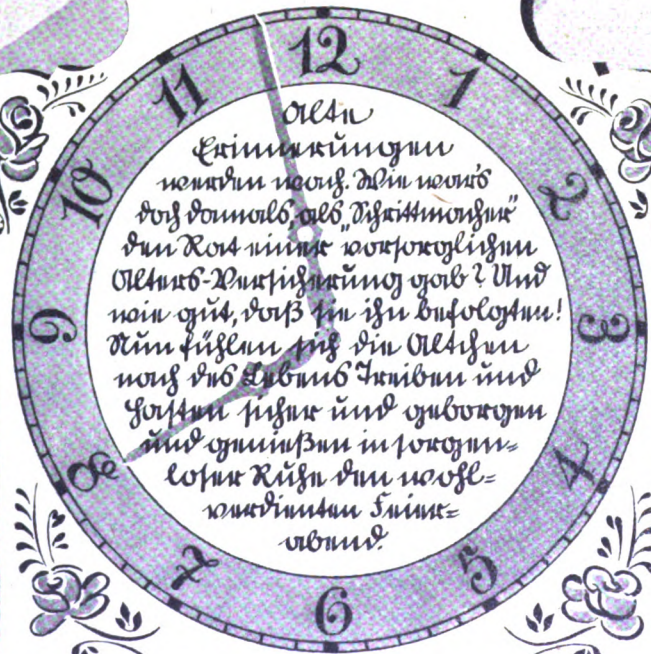 12
11
1
10
2
9
3
8
4
7
5
6
Alte
Erinnerungen
werden wach. Wie war's
doch damals, als „Schrittmacher"
den Rat einer vorsorglichen
Alters-Versicherung gab? Und
wie gut, daß sie ihn befolgten!
Nun fühlen sich die Altchen
nach des Lebens Treiben und
Hasten sicher und geborgen
und genießen in sorgen-
loser Ruhe den wohl-
verdienten Feier-
abend.